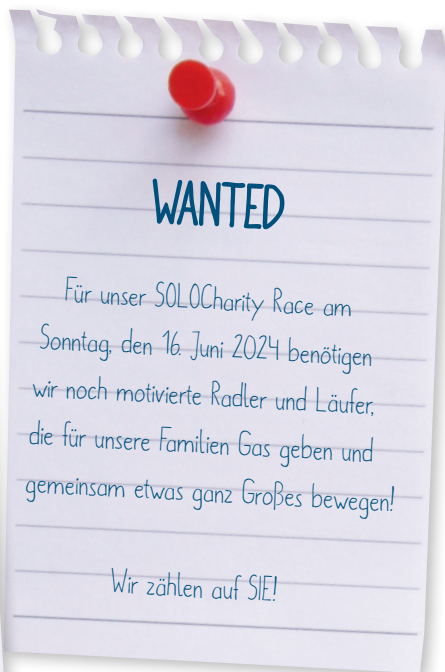 WANTED
Für unser SOLOCharity Race am
Sonntag, den 16. Juni 2024 benötigen
wir noch motivierte Radler und Läufer,
die für unsere Familien Gas geben und
gemeinsam etwas ganz Großes bewegen!
Wir zählen auf SIE!